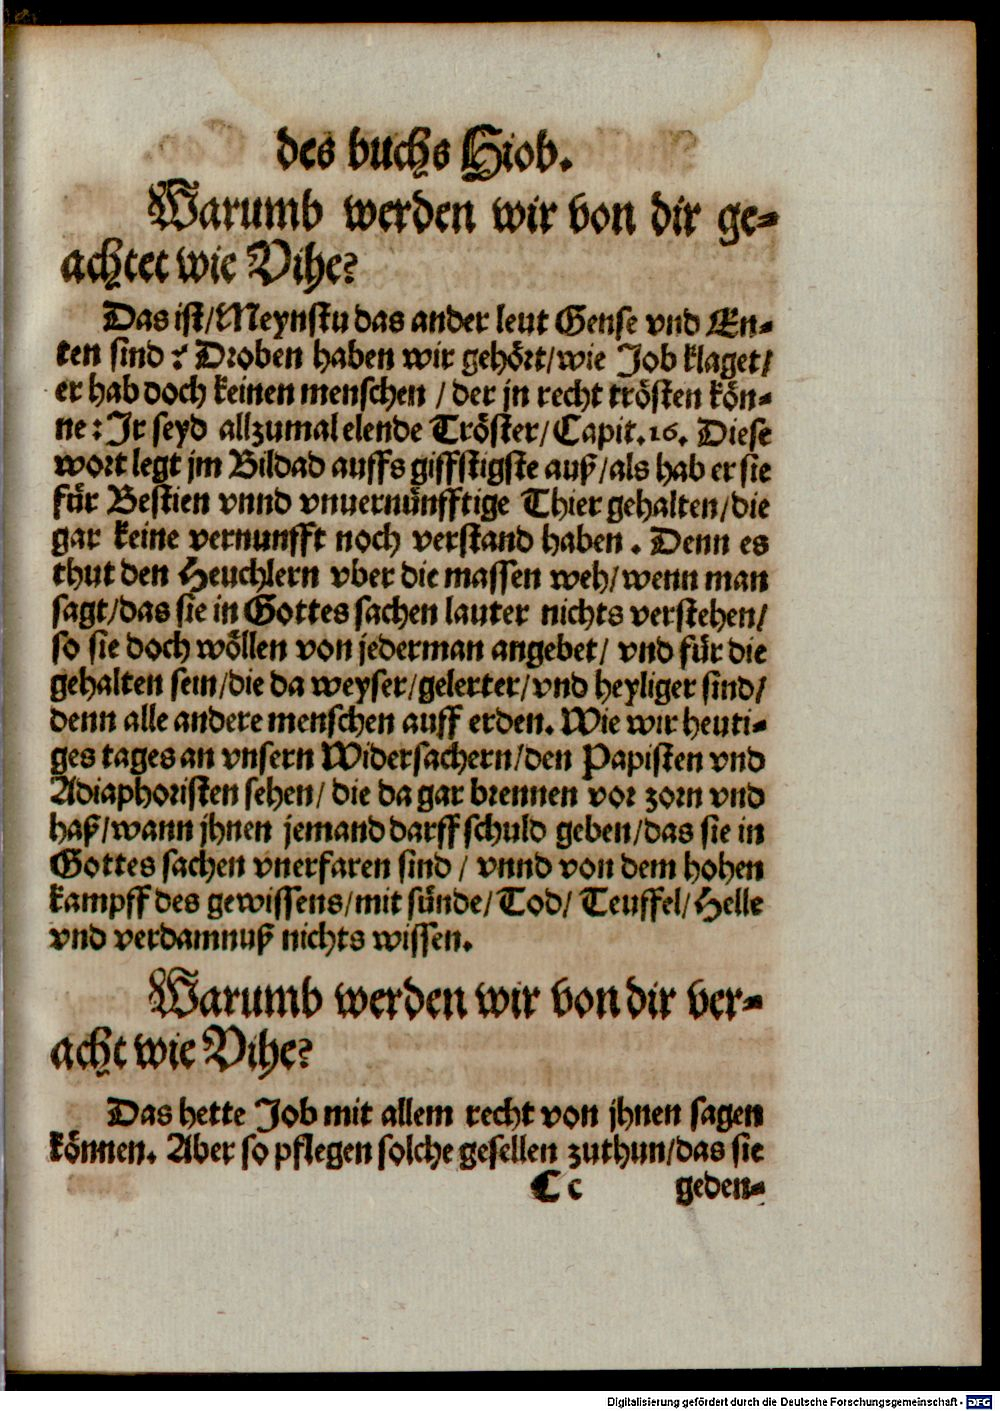 des buchs Hiob.
Warumb werden wir von dir ge-
achtet wie Vihe?
Das ist/Meynstu das ander leut Gense vnd En-
ten sind? Droben haben wir gehört/wie Job klaget/
er hab doch keinen menschen / der jn recht trösten kön-
ne: Jr seyd allzumal elende Tröster/Capit.16. Diese
wort legt jm Bildad auffs gifftigste auß/als hab er sie
für Bestien vnnd vnuernünfftige Thier gehalten/die
gar keine vernunfft noch verstand haben. Denn es
thut den Heuchlern vber die massen weh/wenn man
sagt/das sie in Gottes sachen lauter nichts verstehen/
so sie doch wöllen von jederman angebet/ vnd für die
gehalten sein/die da weyser/gelerter/vnd heyliger sind/
denn alle andere menschen auff erden. Wie wir heuti-
ges tages an vnsern Widersachern/den Papisten vnd
Adiaphoristen sehen/ die da gar brennen vor zorn vnd
haß/wann jhnen jemand darff schuld geben/das sie in
Gottes sachen vnerfaren sind / vnnd von dem hohen
kampff des gewissens/mit sünde/Tod/ Teuffel/Helle
vnd verdamnuß nichts wissen.
Warumb werden wir von dir ver-
acht wie Vihe?
Das hette Job mit allem recht von jhnen sagen
können. Aber so pflegen solche gesellen zuthun/das sie
Cc geden-
Digitalisierung gefördert durch die Deutsche Forschungsgemeinschaft - DFG